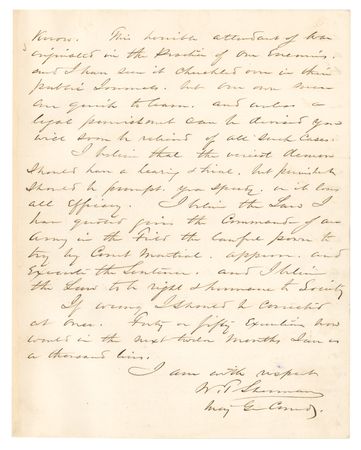 Know. This horrible attendant of War
originated in the Practice of our Enemies
and I have seen it chuckled over in their
public Journals. but our own men
are quick to learn. and unless a
legal punishment can be devised you
will soon be relieved of all such cases.
I believe that the veriest demon
should have a hearing &
should be prompt. yea speedy. or it loses
all Efficacy. I believe the Laws I
have quoted gives the Command of an
Army in the Field the lawful power to
try by Court Martial. approve. and
Execute the Sentence. and I believe
the Law to be right & humane to Society
If wrong I should be corrected
at once. Forty or fifty Executions now
would in the next twelve Months save
a thousand lives.
I am with respect
W. T. Sherman
Maj Genl Comdg.